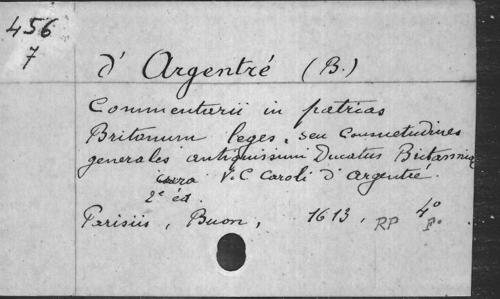 456
7
d' Argentré (B.)
Commentarii in patrias
Britonum leges, seu Consuetudines
generales antiquissimi Ducatus Britanniæ
cura V.C Caroli d'Argentré.
2e éd.
Parisiis, Buon, 1613, RP 4o